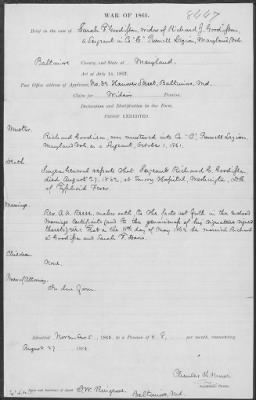 WAR OF 1861.
8667
Brief in the case of Sarah F. Goodiffen, widow of Richard J. Goodiffen,
a Sergeant in Co "C" Purnell Legion, Maryland Vols.
Baltimore County, and State of Maryland.
Act of July 14, 1862.
Post Office address of Applicant: No. Hanover Street, Baltimore, Md.
Claim for Widow Pension.
Declaration and Identification in due Form.
PROOF EXHIBITED
Muster.
Richard Goodiffen, was mustered into Co "C", Purnell Legion,
Maryland Vols. as a Sergeant, October 1, 1861.
Death.
Surgeon General reports that Sergeant Richard Goodiffen
died August 27, 1862, at Emory Hospital, Washington, of
Typhoid Fever.
Marriage.
Rev. A. A. Reese, makes oath to the facts set forth in the within
marriage certificate, (and to the genuineness of his signature signed
thereto) viz: That on the day of May he married Richard
Goodiffen and Sarah F.
Children.
None.
Power of Attorney.
In due form.
Admitted November 5, 186 , to a Pension of $ 8, per month, commencing
August 27, 1862.
Charles
Name and Residence of Agent.
Baltimore, Md.